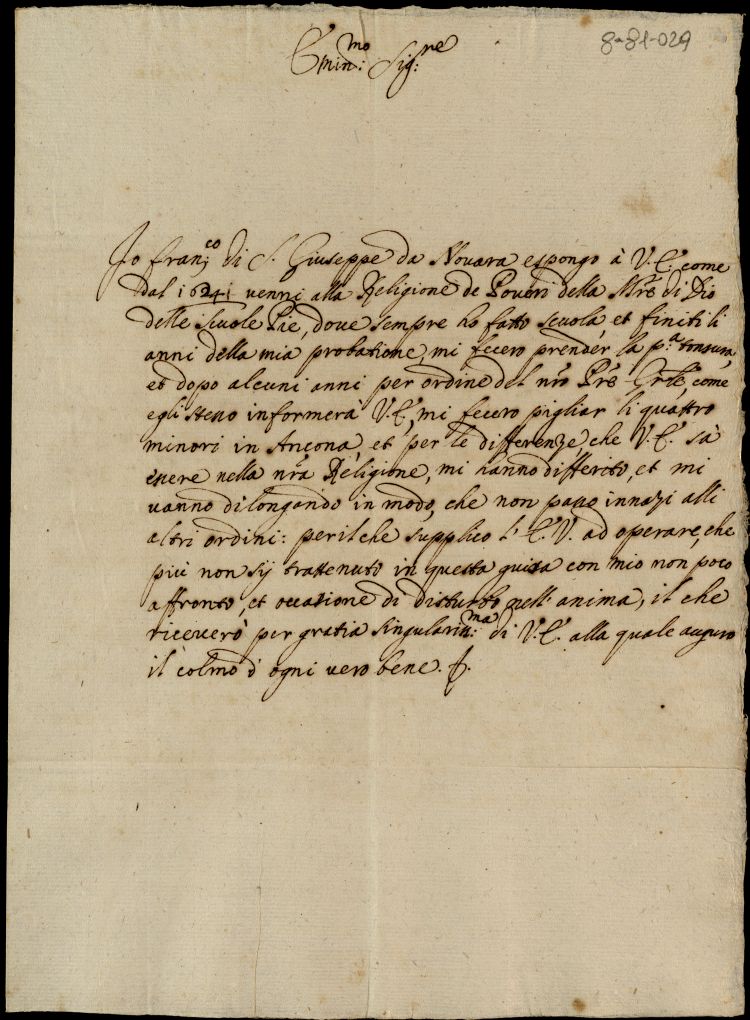 8-81-029
Emin:mo Sig:re
Io Fran:co di S. Giuseppe da Novara espongo à V.E. come
dal 1641 venni alla Religione de Poveri della Mre di Dio
delle Scuole Pie, dove sempre ho fatto scuola, et finiti li
anni della mia probatione, mi fecero prender la p.a tonsura,
et dopo alcuni anni per ordine del nro Pre Grle, come
egli stesso informerà V.E., mi fecero pigliar li quattro
minori in Ancona, et per le differenze, che V.E. sà
essere nella nra Religione, mi hanno differito, et mi
vanno dilongando in modo, che non passo innazi alli
altri ordini: perilche supplico l'E.V. ad operare, che
più non sij trattenuto in questa guisa con mio non poco
affronto, et occasione di disturbo nell'anima, il che
riceverò per gratia singulariss:ma di V.E. alla quale auguro
il colmo d'ogni vero bene.